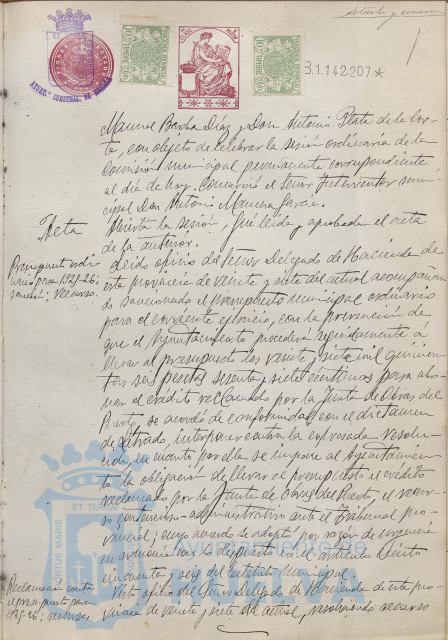 B.1.142.207*
Manuel Barba Díaz y Don Antonio Plata de la Cor-
ta, con objeto de celebrar la sesión ordinaria de la
Comisión municipal permanente correspondiente
al día de hoy. Concurrió el Señor Interventor muni-
cipal Don Antonio Mancera García.
Acta
Abierta la sesión, fué leída y aprobada el acta
de la anterior.
Presupuesto ordi-
nario para 1925-26,
Recurso.
Leido oficio del Señor Delegado de Hacienda de
esta provincia de veinte y siete del actual acompañan-
do sancionado el presupuesto municipal ordinario
para el corriente ejercicio, con la prevención de
que el Ayuntamiento procederá seguidamente á
llevar al presupuesto las veinte y siete mil quinien-
tas seis pesetas sesenta y siete centimos para abo-
nar el crédito reclamado por la Junta de Obras del
Puerto, se acordó de conformidad con el dictamen
de Letrado, interponer contra la expresada resolu-
ción, en cuanto por ella se impone al Ayuntamien-
to la obligación de llevar al presupuesto el crédito
reclamado por la Junta de Obras del Puerto, el recur-
so contencioso-administrativo ante el Tribunal pro-
vincial; cuyo acuerdo se adopta por razón de urgencia
en armonía con lo dispuesto en el artículo ciento
cincuenta y seis del Estatuto Municipal.
Reclamación contra
el presupuesto para
1925-26; recurso.
Visto oficio del Señor Delegado de Hacienda de esta pro-
vincia de veinte y siete del actual, resolviendo recurso